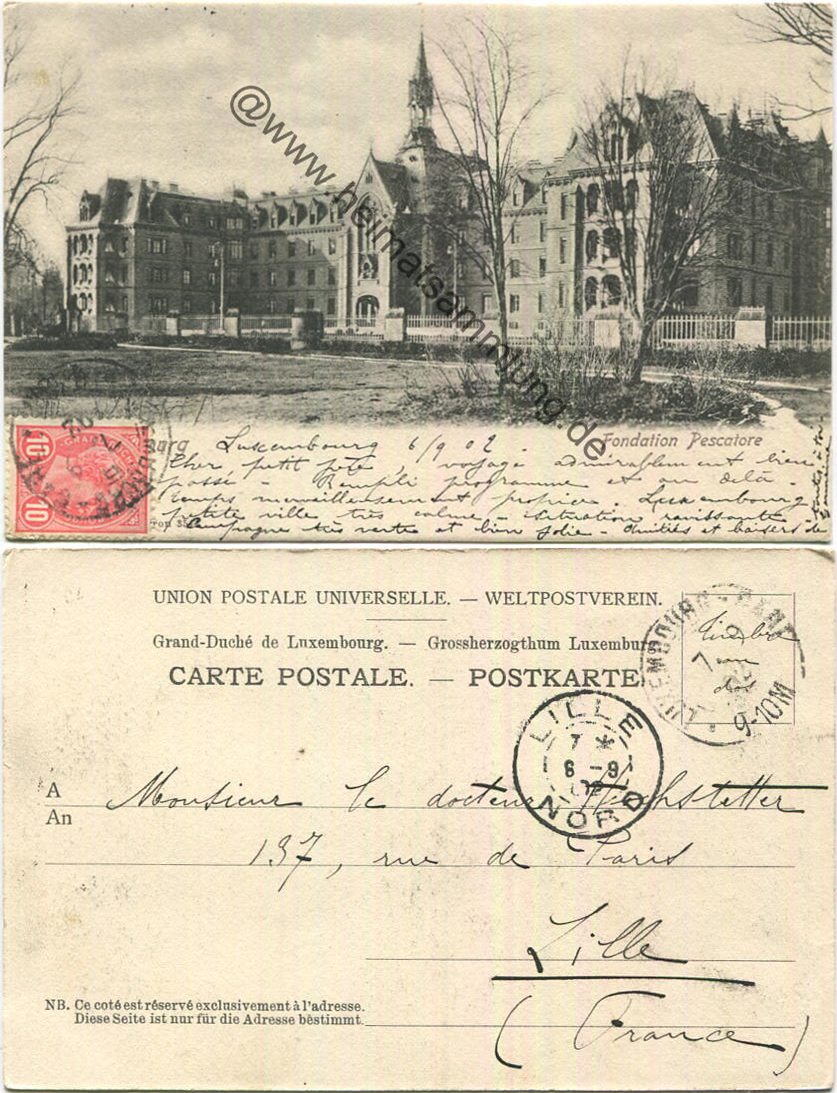 @www.heimatsammlung.de
Fondation Pescatore
Luxembourg 6/9 02
Cher petit père, voyage admirablement bien
passé - Rempli programme et au delà -
temps merveilleusement propice. Luxembourg
petite ville très calme - situation ravissante
Campagne très verte et bien jolie - Amitiés et baisers de
10 10
UNION POSTALE UNIVERSELLE. — WELTPOSTVEREIN.
Grand-Duché de Luxembourg. — Grossherzogthum Luxemburg.
CARTE POSTALE. — POSTKARTE
Timbre
au
dos
LUXEMBOURG-GARE
7 9
9-10M
LILLE
7 *
6 - 9
02
NORD
A Monsieur le docteur Hochstetter
An
137, rue de Paris
Lille
(France)
NB. Ce coté est réservé exclusivement à l'adresse.
Diese Seite ist nur für die Adresse bestimmt.